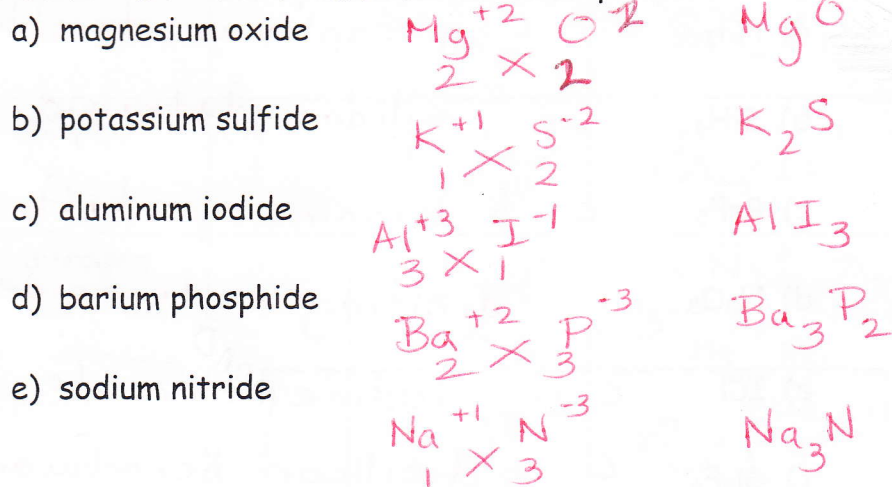 a) magnesium oxide Mg +2 O -2 Mg O
2 X 2
b) potassium sulfide K +1 S -2 K2S
1 X 2
c) aluminum iodide Al +3 I -1 Al I3
3 X 1
d) barium phosphide Ba +2 P -3 Ba3P2
2 X 3
e) sodium nitride Na +1 N -3 Na3N
1 X 3